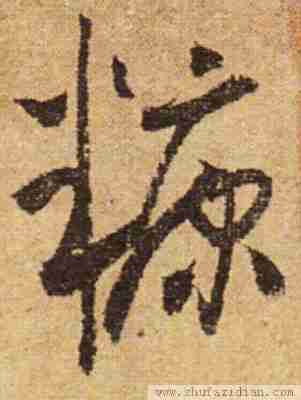 糠
www.zhufazidian.com